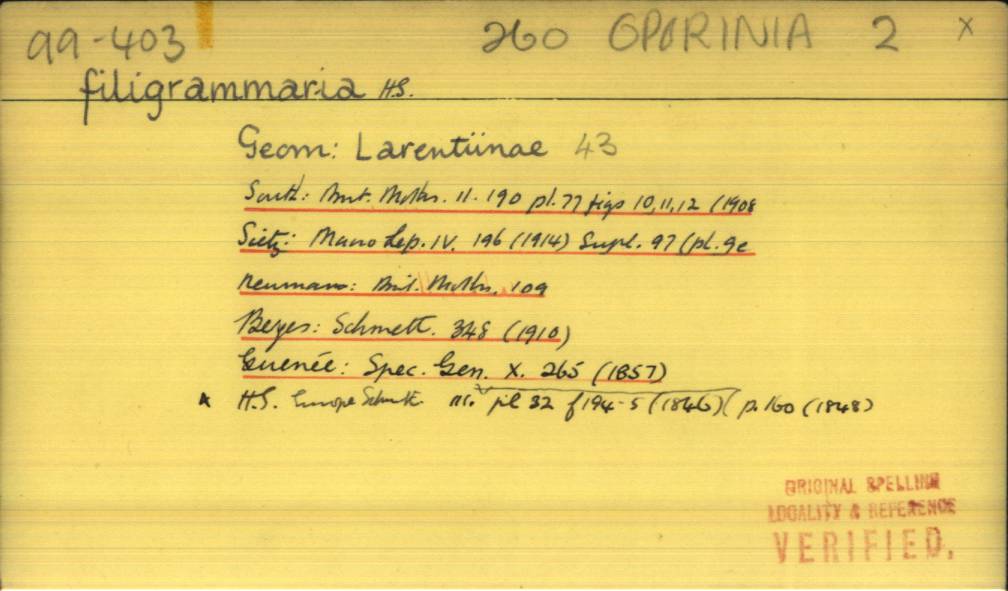 99-403 260 OPORINIA 2 x
filigrammaria H.S.
Geom: Larentiinae 43
South: Brit. Moths. 11. 190 pl. 77 figs 10, 11, 12 (1908
Sietz: Macro Lep. IV. 196 (1914) Supl. 97 (pl. 9e
Neumann: Brit. Moths. 109
Beyes: Schmett. 348 (1910)
Guenée: Spec. Gen. X. 265 (1857)
H.S. Europe Schmett. pl 32 f 194-5 (1846) (p. 160 (1848)
ORIGINAL SPELLING
LOCALITY & REFERENCE
VERIFIED.